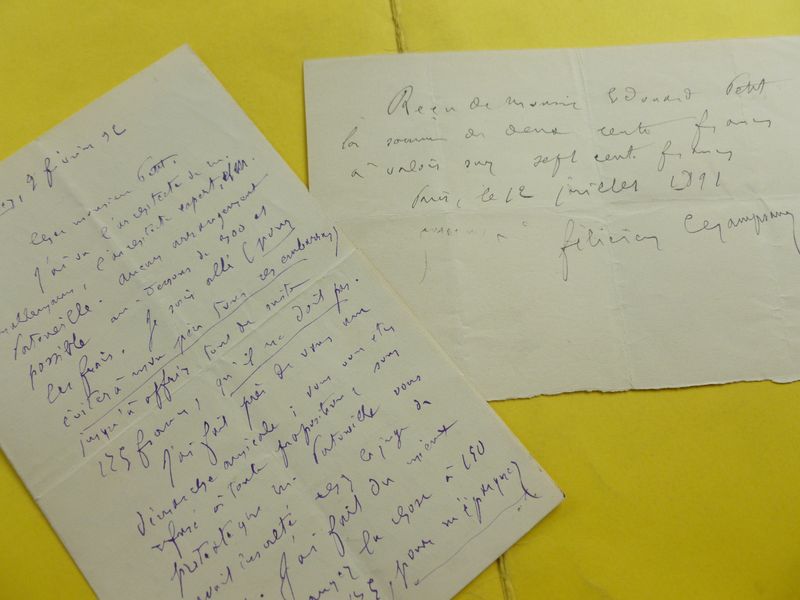 2 février 92
cher monsieur Petit,
J'ai vu l'insistante de mr
l'insistante
Porteveille. aucun arrangement
possible au-dessous de 300 et
les frais. Je suis allé (pour
éviter à mon père tous ces embarras)
jusqu'à offrir tout de suite
125 francs, qu'il ne doit pas.
J'ai fait près de vous une
démarche amicale ; vous vous êtes
refusé à toute proposition, sous
prétexte que mr Porteveille vous
avait insulté
J'ai fait du mieux
la chose à 150
pour m'épargner
Reçu de monsieur Edouard Petit
la somme de deux cents francs
à valoir sur sept cents francs
Paris, le 12 juillet 1891
félicien Champsaur